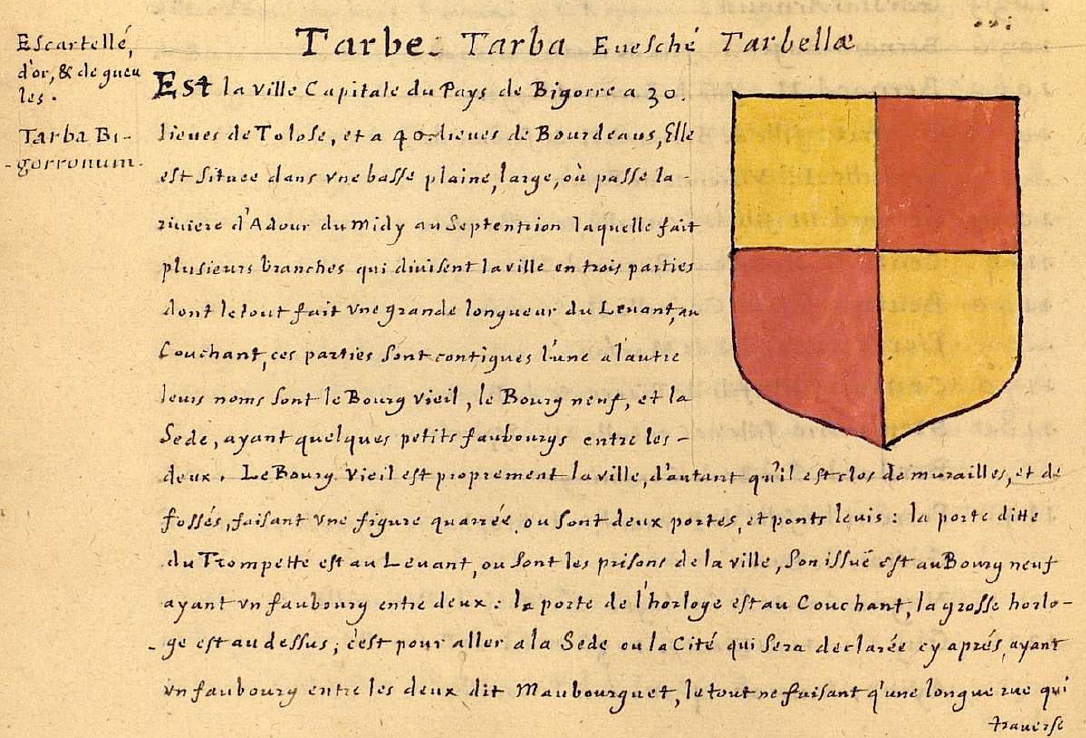 Tarbe. Tarba Euesché Tarbellæ
Escartellé,
d'or, & de gueu
les.
Tarba Bi-
gorronum.
Est la ville Capitale du Pays de Bigorre a 30.
lieues de Tolose, et a 40 lieues de Bourdeaus, Elle
est situee dans vne basse plaine, large, où passe la -
riuiere d'Adour du Midy au Septentrion laquelle fait
plusieurs branches qui diuisent la ville en trois parties
dont le tout fait vne grande longueur du Leuant, au
Couchant, ces parties sont contigues l'une a l'autre
leurs noms sont le Bourg vieil, le Bourg neuf, et la
Sede, ayant quelques petits faubourgs entre les -
deux. Le Bourg Vieil est proprement la ville, d'autant qu'il est clos de murailles, et de
fossés, faisant vne figure quarrée, ou sont deux portes, et ponts leuis : la porte ditte
du Trompette est au Leuant, ou sont les prisons de la ville, son issuë est au Bourg neuf
ayant vn faubourg entre deux : la porte de l'horloge est au Couchant, la grosse horlo-
ge est au dessus ; c'est pour aller a la Sede ou la Cité qui sera declarée cy aprés, ayant
vn faubourg entre les deux dit Maubourguet, le tout ne faisant q'une longue rue qui
trauerse